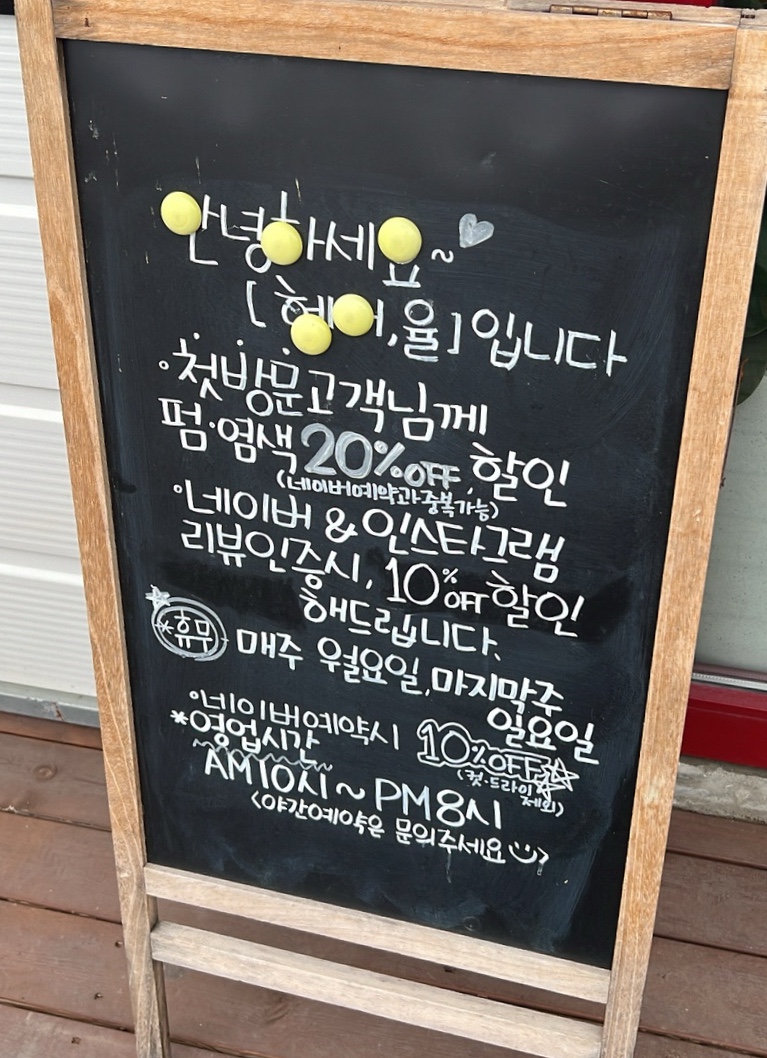 안녕하세요~
[헤어,율]입니다
·첫방문고객님께
펌·염색 20%OFF 할인
(네이버예약과중복가능)
·네이버 & 인스타그램
리뷰인증시, 10%OFF 할인
해드립니다.
*휴무 매주 월요일,마지막주
일요일
·네이버예약시 10%OFF
(컷·드라이
제외)
*영업시간
AM10시~PM8시
(야간예약은 문의주세요)